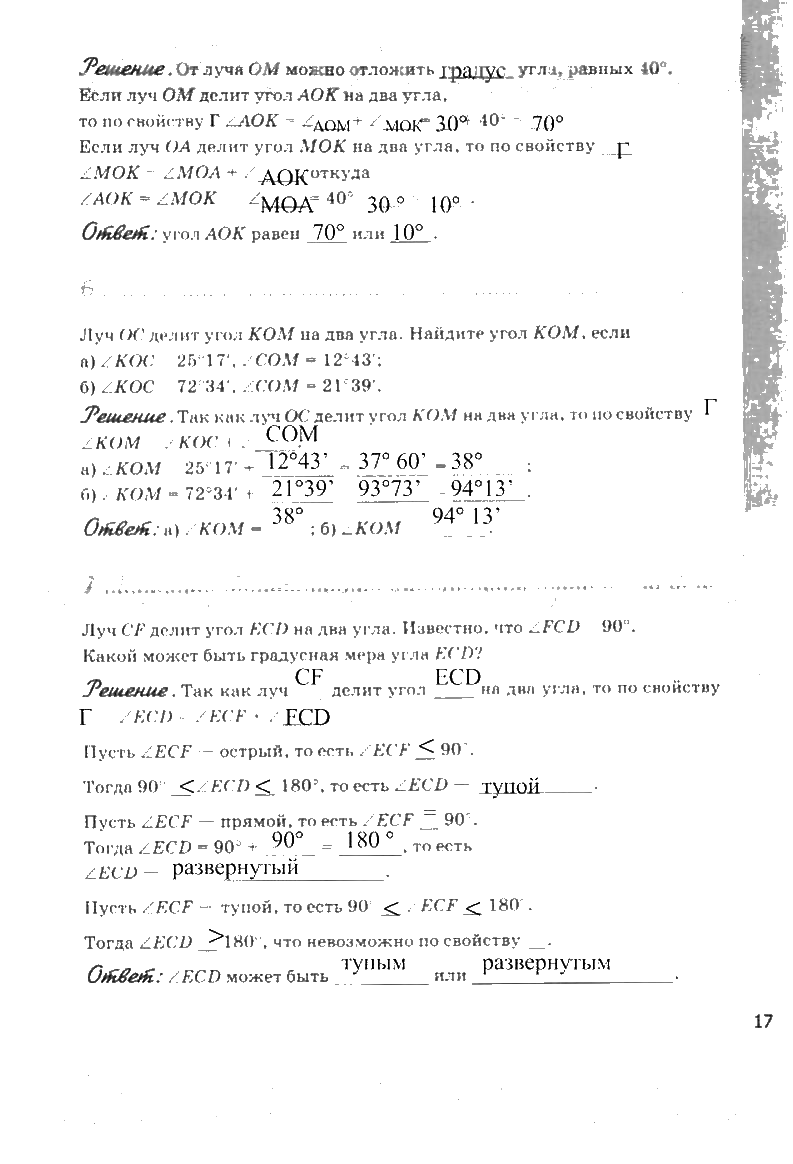 Решение. От луча ОМ можно отложить градус угла, равных 40°.
Если луч ОМ делит угол АОК на два угла,
то по свойству Г ∠АОК = ∠АОМ + ∠МОК = 30° + 40° = 70°
Если луч ОА делит угол МОК на два угла, то по свойству Г
∠МОК = ∠МОА + ∠АОК откуда
∠АОК = ∠МОК ∠МОА = 40° 30° 10°.
Ответ: угол АОК равен 70° или 10°.
6
Луч ОС делит угол КОМ на два угла. Найдите угол КОМ, если
а) ∠КОС 25°17', ∠СОМ = 12°43';
б) ∠КОС 72°34', ∠СОМ = 21°39'.
Решение. Так как луч ОС делит угол КОМ на два угла, то по свойству Г
∠КОМ ∠КОС + ∠СОМ
а) ∠КОМ 25°17' + 12°43’ = 37° 60’ = 38° ;
б) ∠КОМ = 72°34' + 21°39’ 93°73’ - 94°13’ .
Ответ: а) ∠КОМ = 38° ; б) ∠КОМ 94° 13’ .
7
Луч CF делит угол ECD на два угла. Известно, что ∠FCD 90°.
Какой может быть градусная мера угла ECD?
Решение. Так как луч CF делит угол ECD на два угла, то по свойству
Г ∠ECD = ∠ECF + ∠FCD
Пусть ∠ECF — острый, то есть ∠ECF ≤ 90°.
Тогда 90° ≤ ∠ECD ≤ 180°, то есть ∠ECD — тупой.
Пусть ∠ECF — прямой, то есть ∠ECF = 90°.
Тогда ∠ECD = 90° + 90° = 180 °, то есть
∠ECD — развернутый .
Пусть ∠ECF — тупой, то есть 90° < ∠ECF < 180°.
Тогда ∠ECD > 180°, что невозможно по свойству __.
Ответ: ∠ECD может быть тупым или развернутым .
17